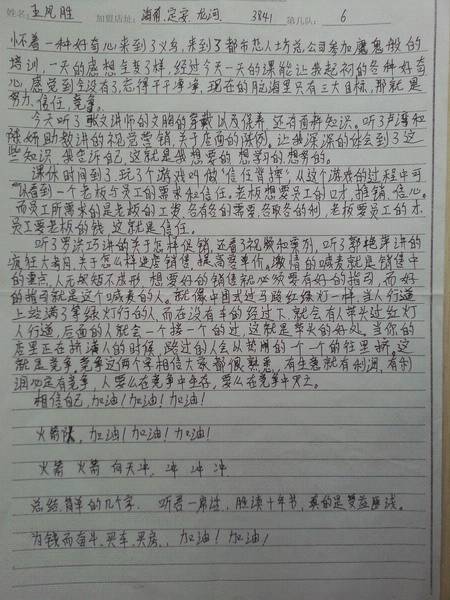 姓名: 王凤胜 加盟店址: 海南、定安、龙河 3841 第几队: 6
怀着一种好奇心来到了义乌,来到了都市恋人坊总公司参加魔鬼般的
培训,一天的感想全变了样,经过今天一天的课能让我起初的各种好奇
心,感觉到全没有了,忘得干干净净,现在的脑海里只有三大目标,那就是
努力、信任、竞争。
今天听了 文讲师的文胸的穿戴以及保养,还有面料知识。听了卢
娇助教讲的视觉营销,关于店面的陈列。让我深深的体会到了这
些知识,我告诉自己,这就是我想要的,想学习的想努的。
课休时间到了,玩了个游戏叫做“信任背摔”,从这个游戏的过程中可
以看到一个老板与员工的需求和信任。老板想要员工的口才、推销、信心。
而员工所需求的是老板的工资,各有各的需要,各取各的利,老板要员工的才,
员工要老板的钱,这就是信任。
听了罗洪巧讲的关于怎样促销,还看了视频和案列,听了郭艳萍讲的
疯狂大卖月,关于怎么样进店销售,提高客单价。激情的喊麦就是销售中
的重点,人无完短不成形,想要好的销售就必须要有好的指引,而好
的指引就是这个喊麦的人。就像中国式过马路红绿灯一样,当人行道
上站满了等绿灯行的人,而在没有车的经过下,就会有人带头过红灯
人行道,后面的人就会一个接一个的过,这就是带头的好处。当你的
店里正在挤满人的时候,路过的人会从 的一个一个的往里挤。这
就是竞争,竞争这俩个字相信大家都很熟悉,有生意就有利润,有利
润必定有竞争,人要么在竞争中生存,要么在竞争中灭亡。
相信自己,加油!加油!加油!
火箭队,加油!加油!加油!
火箭 火箭 向天冲,冲 冲 冲.
总结简单的几个字. 听君一席话,胜读十年书,真的是受益匪浅。
为钱而奋斗、买车、买房、加油!加油!